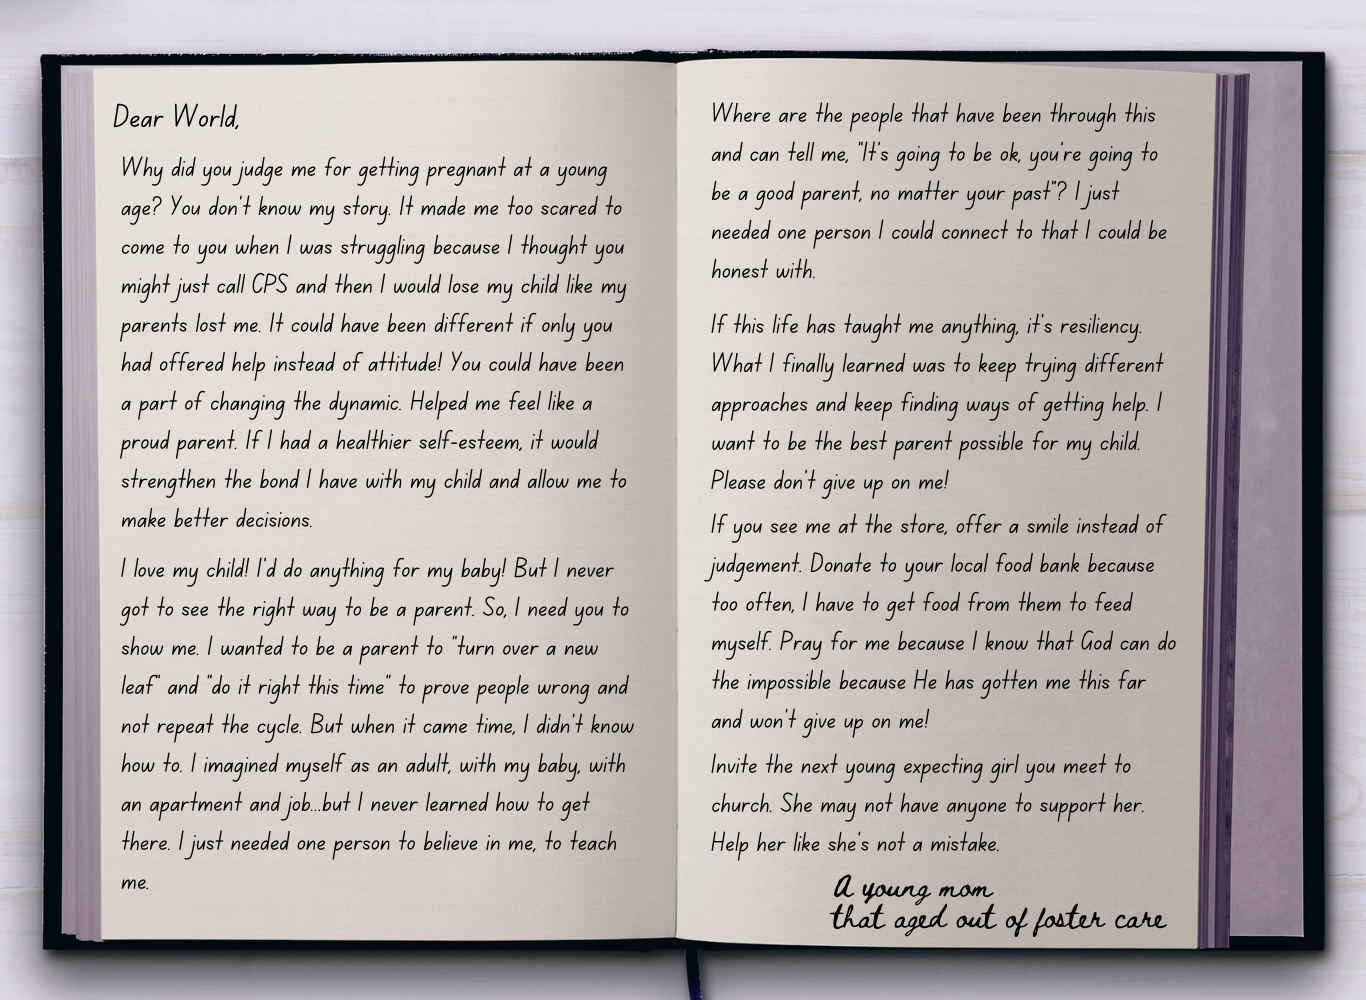 Dear World,
Why did you judge me for getting pregnant at a young
age? You don't know my story. It made me too scared to
come to you when I was struggling because I thought you
might just call CPS and then I would lose my child like my
parents lost me. It could have been different if only you
had offered help instead of attitude! You could have been
a part of changing the dynamic. Helped me feel like a
proud parent. If I had a healthier self-esteem, it would
strengthen the bond I have with my child and allow me to
make better decisions.
I love my child! I'd do anything for my baby! But I never
got to see the right way to be a parent. So, I need you to
show me. I wanted to be a parent to "turn over a new
leaf" and "do it right this time" to prove people wrong and
not repeat the cycle. But when it came time, I didn't know
how to. I imagined myself as an adult, with my baby, with
an apartment and job...but I never learned how to get
there. I just needed one person to believe in me, to teach
me.
Where are the people that have been through this
and can tell me, "It's going to be ok, you're going to
be a good parent, no matter your past"? I just
needed one person I could connect to that I could be
honest with.
If this life has taught me anything, it's resiliency.
What I finally learned was to keep trying different
approaches and keep finding ways of getting help. I
want to be the best parent possible for my child.
Please don't give up on me!
If you see me at the store, offer a smile instead of
judgement. Donate to your local food bank because
too often, I have to get food from them to feed
myself. Pray for me because I know that God can do
the impossible because He has gotten me this far
and won't give up on me!
Invite the next young expecting girl you meet to
church. She may not have anyone to support her.
Help her like she's not a mistake.
A young mom
that aged out of foster care